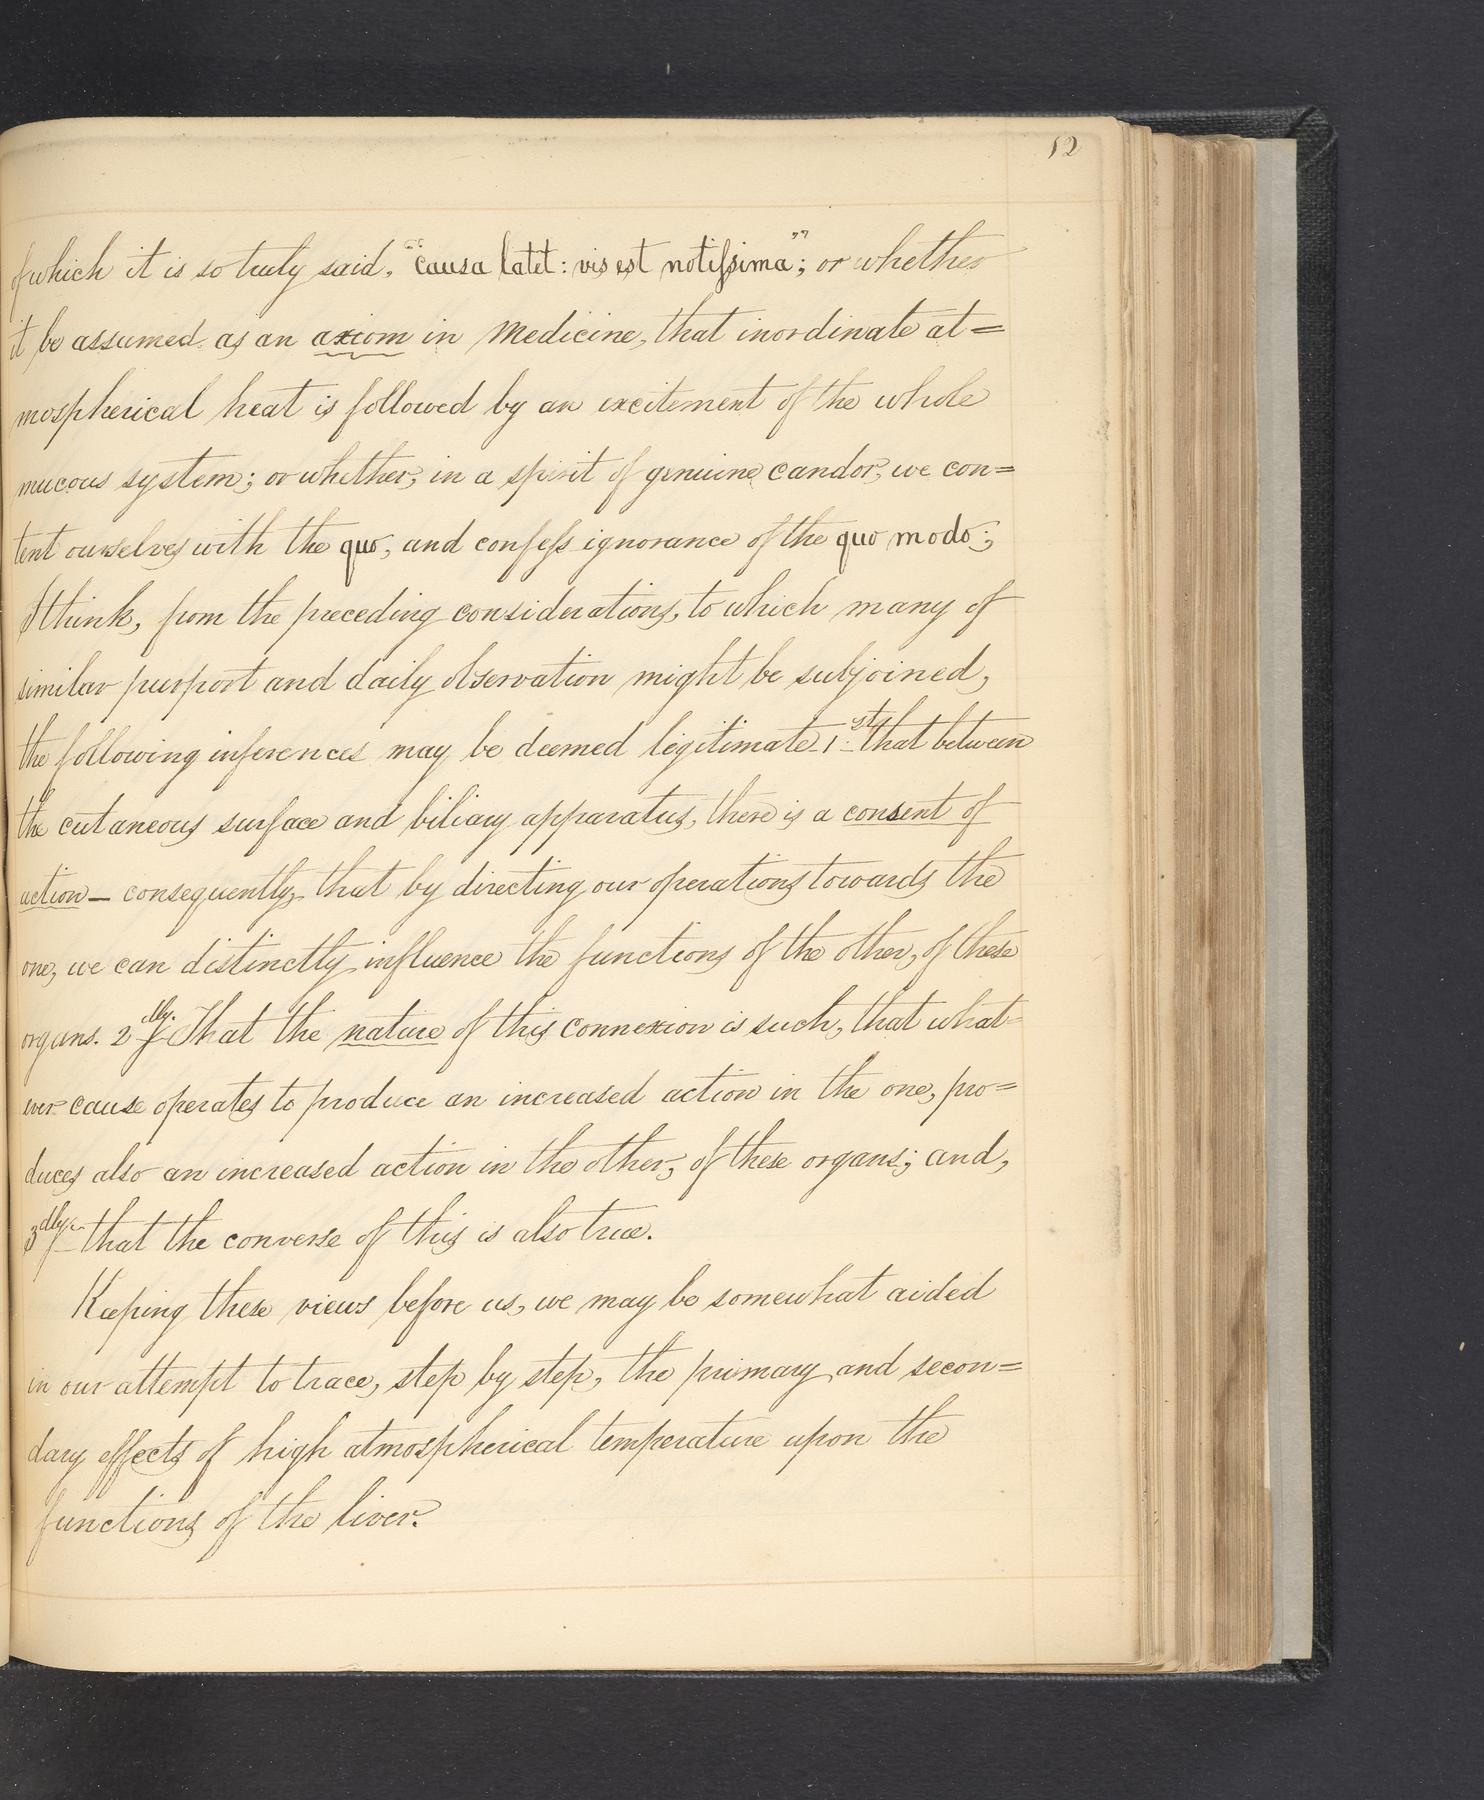 12
of which it is so truly said, "causa latet: vis est notissima"; or whether
it be assumed as an axiom in Medicine, that inordinate at=
mospherical heat is followed by an excitement of the whole
mucous system; or whether, in a spirit of genuine candor, we con=
tent ourselves with the quo, and confess ignorance of the quo modo;
I think, from the preceding considerations, to which many of
similar purport and daily observation might be subjoined,
the following inferences may be deemed legitimate, 1st that between
the cutaneous surface and biliary apparatus, there is a consent of
action — consequently, that by directing our operations towards the
one, we can distinctly influence the functions of the other, of these
organs. 2dly. That the nature of this connexion is such, that what-
ever cause operates to produce an increased action in the one, pro=
duces also an increased action in the other, of these organs; and,
3dly. that the converse of this is also true.
Keeping these views before us, we may be somewhat aided
in our attempt to trace, step by step, the primary and secon=
dary effects of high atmospherical temperature upon the
functions of the liver.